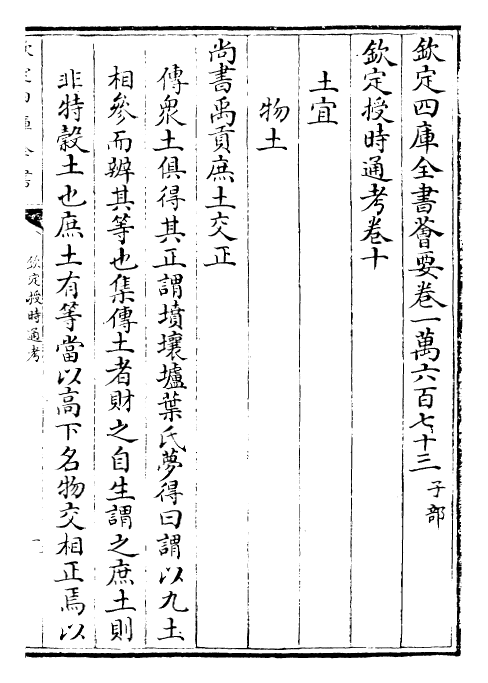 欽定四庫全書薈要卷一萬六百七十三 子部
欽定授時通考卷十
土宜
物土
尚書禹貢庶土交正
傳衆土俱得其正謂墳壤壚葉氏夢得曰謂以九土
相參而辨其等也集傳土者財之自生謂之庶土則
非特穀土也庶土有等當以高下名物交相正焉以
欽定授時通考